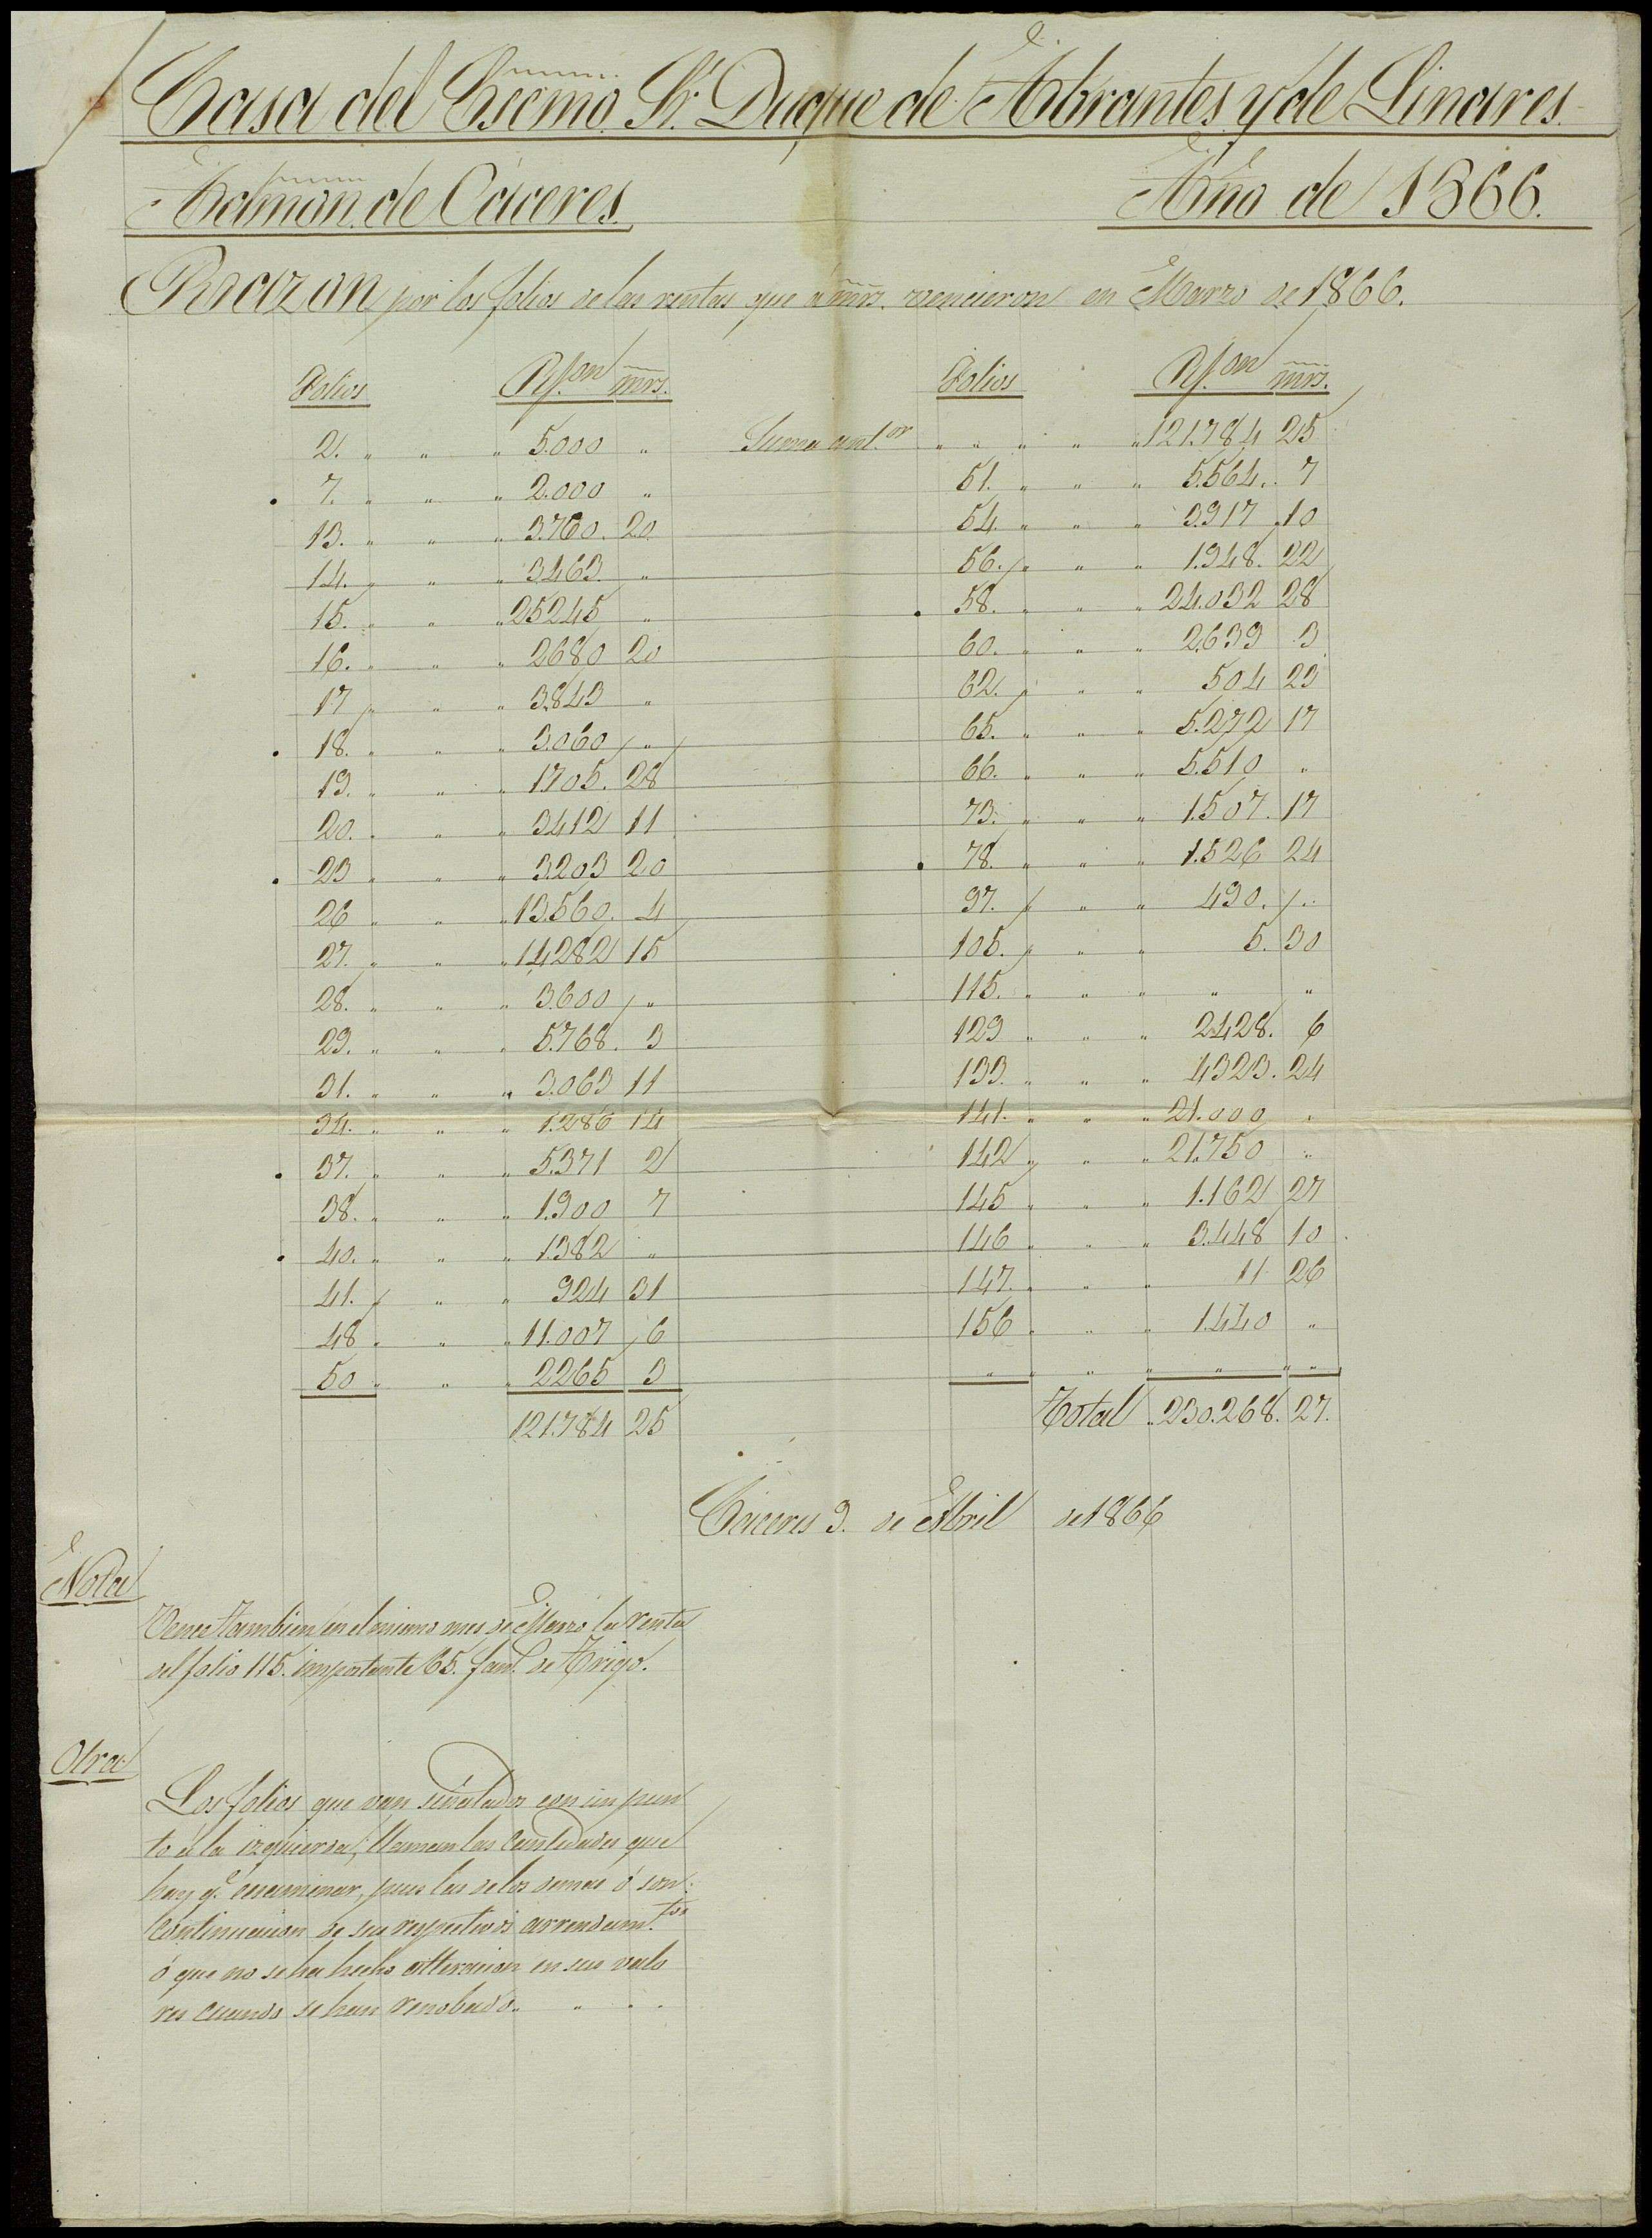 Casa del Escmo. Sr. Duque de Abrantes y de Linares.
Admon. de Cáceres. Año de 1866.
Razon por los folios de las rentas que á mrs. vencieron en Marzo de 1866.
Folios Rs.on mrs.
2. " " " 5.000 "
. 7. " " " 2.000 "
13. " " " 3.760. 20
14. " " " 3463 "
15. " " " 25245 "
16. " " " 2680 20
17 " " " 3.843 "
. 18. " " " 3.060 "
19. " " " 1.705. 28
20. " " " 3412 11
. 23 " " " 3.203 20
26 " " " 13.560. 4
27. " " " 14.282 15
28. " " " 3.600 "
29. " " " 5.768. 3
31. " " " 3.063 11
34. " " " 1.286 14
. 37. " " " 5.371 2
38. " " " 1.900 7
. 40. " " " 1.382 "
41. " " " 924 31
48 " " " 11.007 6
50 " " " 2265 3
121.784 25
Folios Rs.on mrs.
Suma ant.or " " " " " 121.784 25
51. " " " 5.564. 7
54. " " " 3.917 10
56. " " " 1.948. 22
. 58. " " " 24.032 28
60. " " " 2.639 3
62. " " " 504 23
65. " " " 5.272 17
66. " " " 5.510 "
73. " " " 1.507. 17
. 78. " " " 1.526 24
97. " " " 490. "
105. " " " 5. 30
115. " " " " "
129 " " " 2.428. 6
133. " " " 4323. 24
141. " " " 21.000 "
142 " " " 21.750 "
145 " " " 1.162 27
146 " " " 3.448 10
147. " " " 11 26
156 " " " 1.440 "
" " " " " " "
Total 230.268. 27.
Cáceres 9. de Abril de 1866
Nota
Vence tambien en el mismo mes de Marzo la renta
del folio 115. importante 65. fan.s de Trigo.
Otra
Los folios que van señalados con un pun
to á la izquierda, llaman las cantidades que
hay q.e examinar, pues las de los demas ó son
continuacion de sus respectivos arrendam.tos
ó que no se ha hecho alteracion en sus valo
res cuando se han renobado. " " "